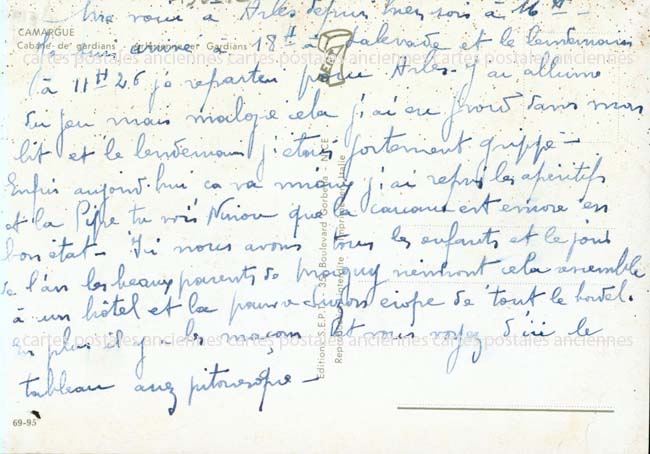 hier soir à 16 H -
CAMARGUE
Cabane de gardians
Gardians
à 18 H à et le lendemain
cartes postales anciennes cartes postales anciennes cartes postales anciennes
à 11 H 26 je repartais pour Arles. j'ai allumé
du feu mais malgré cela j'ai eu froid dans mon
lit et le lendemain j'étais fortement grippé -
Enfin aujourd'hui ça va mieux j'ai repris les apéritifs
et la Pipe tu vois Ninou que la carcasse est encore en
bon état - Ici nous avons tous les enfants et le jour
de l'an les beaux parents de viendront cela ressemble
à un hôtel et la pauvre de tout le bordel.
en plus il y a les maçons et vous voyez d'ici le
cartes postales anciennes cartes postales anciennes cartes postales anciennes
tableau assez pitoresque -
69-95
Boulevard Gorbella - NICE
Imprimé en Italie